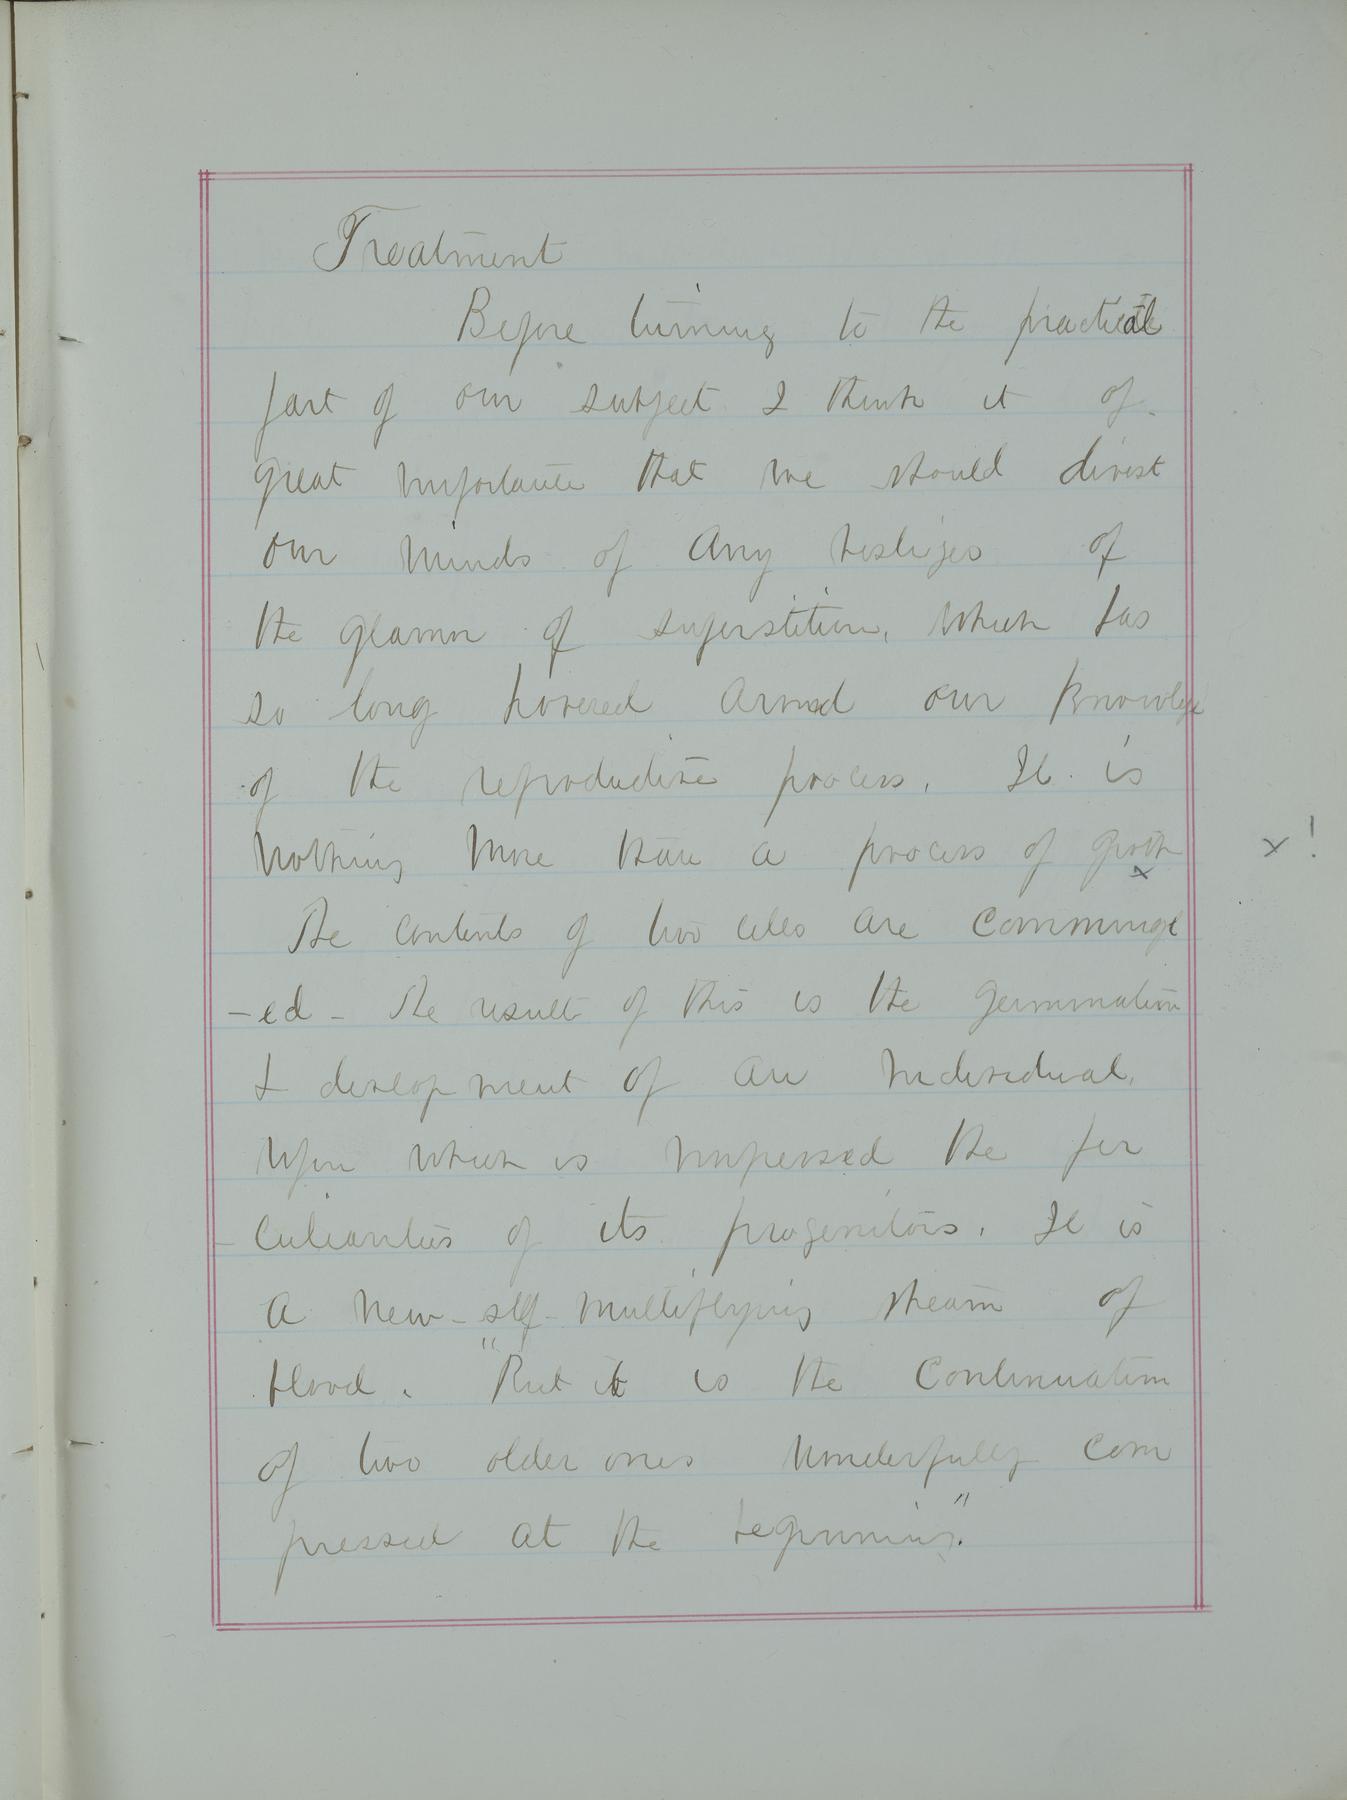 Treatment
Before turning to the practical
part of our subject I think it of
great importance that we should divest
our minds of any vestiges of
the glamor of superstition, which has
so long hovered around our knowledge
of the reproductive process. It is
nothing more than a process of groth x !
x
The contents of two cells are comming̃l
-ed - The result of this is the germination
& development of an individual,
upon which is impressed the per
-culiarities of its progenitors. It is
a new-self-multiplying stream of
blood. "But it is the continuation
of two older ones wonderfully com
pressed at the beginning".